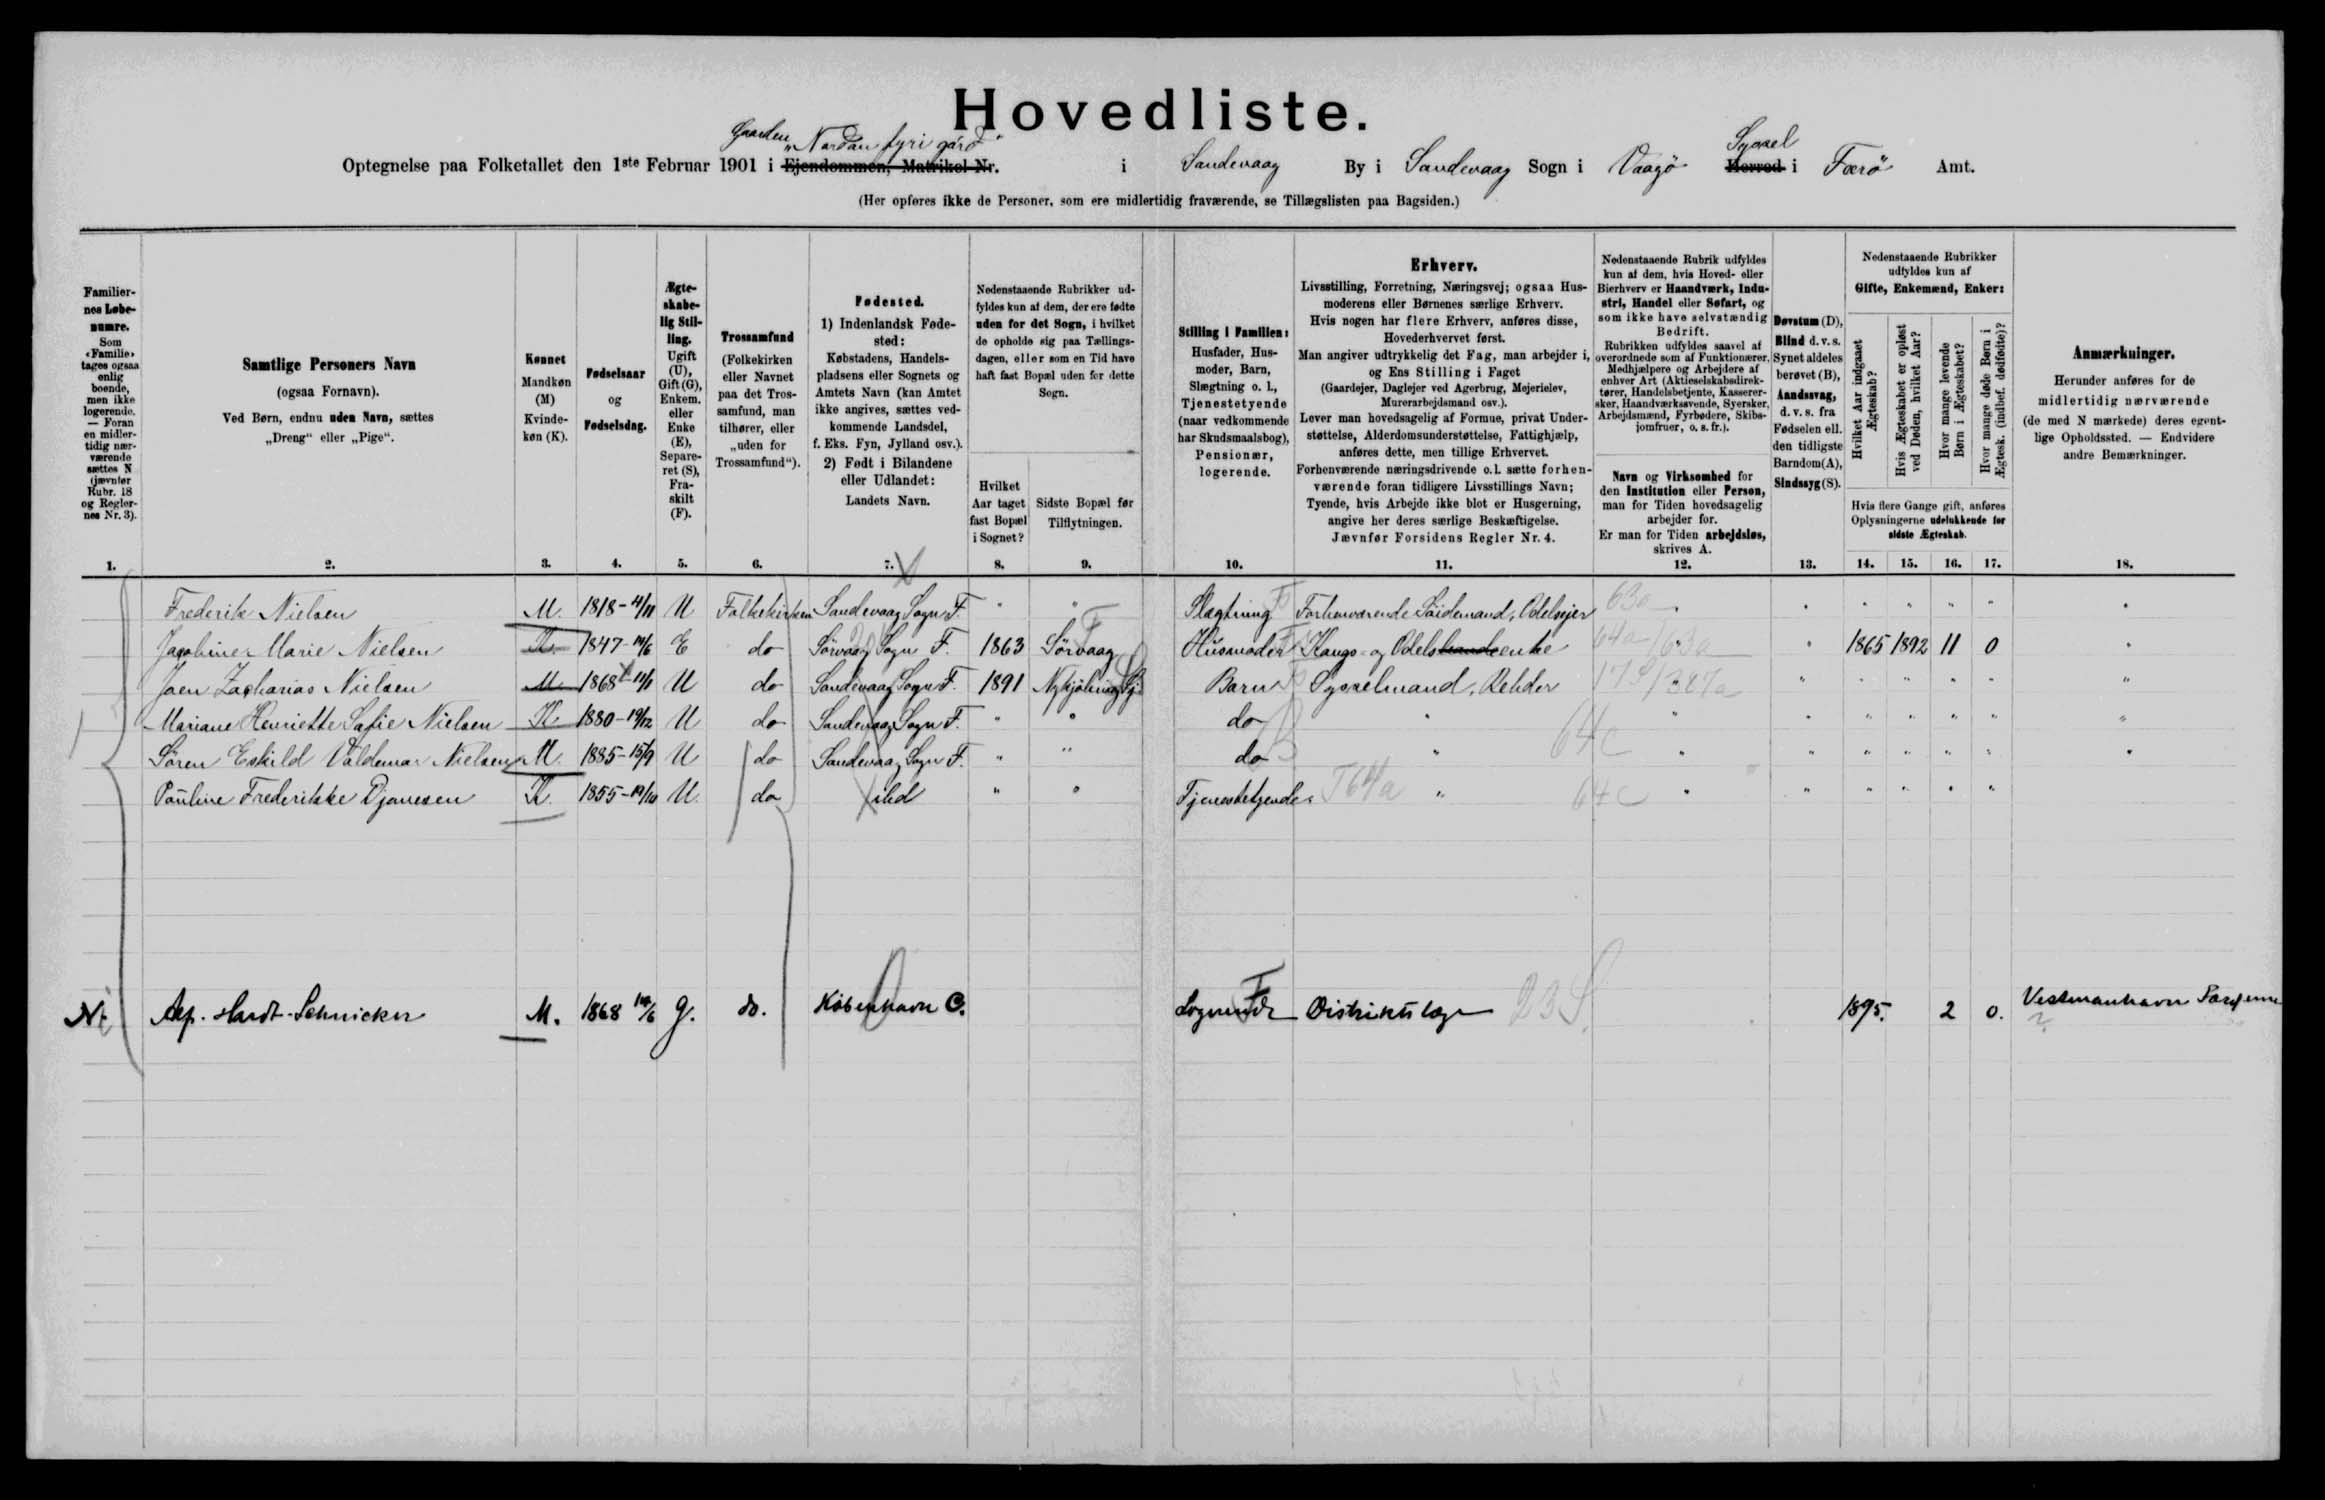 Hovedliste.
Gaarden „Nordan fyri gárd“ Syssel
Optegnelse paa Folketallet den 1ste Februar 1901 i Ejendommen, Matrikel Nr. i Sandevaag By i Sandevaag Sogn i Vaagø Herred i Færø Amt.
(Her opføres ikke de Personer, som ere midlertidig fraværende, se Tillægslisten paa Bagsiden.)
Familiernes Løbenumre.
Som «Familie» tages ogsaa enlig boende, men ikke logerende. — Foran en midlertidig nærværende sættes N (jævnfør Rubr. 18 og Reglernes Nr. 3).
Samtlige Personers Navn
(ogsaa Fornavn).
Ved Børn, endnu uden Navn, sættes
„Dreng“ eller „Pige“.
Kønnet
Mandkøn (M)
Kvindekøn (K).
Fødselsaar
og
Fødselsdag.
Ægteskabelig Stilling.
Ugift (U), Gift (G), Enkem. eller Enke (E), Separeret (S), Fraskilt (F).
Trossamfund
(Folkekirken eller Navnet paa det Trossamfund, man tilhører, eller „uden for Trossamfund“).
Fødested.
1) Indenlandsk Fødested:
Købstadens, Handelspladsens eller Sognets og Amtets Navn (kan Amtet ikke angives, sættes vedkommende Landsdel, f. Eks. Fyn, Jylland osv.).
2) Født i Bilandene eller Udlandet:
Landets Navn.
Nedenstaaende Rubrikker udfyldes kun af dem, der ere fødte uden for det Sogn, i hvilket de opholde sig paa Tællingsdagen, eller som en Tid have haft fast Bopæl uden for dette Sogn.
Hvilket Aar taget fast Bopæl i Sognet?
Sidste Bopæl før Tilflytningen.
Stilling i Familien:
Husfader, Husmoder, Barn, Slægtning o. l., Tjenestetyende (naar vedkommende har Skudsmaalsbog), Pensionær, logerende.
Erhverv.
Livsstilling, Forretning, Næringsvej; ogsaa Husmoderens eller Børnenes særlige Erhverv.
Hvis nogen har flere Erhverv, anføres disse, Hovederhvervet først.
Man angiver udtrykkelig det Fag, man arbejder i, og Ens Stilling i Faget
(Gaardejer, Daglejer ved Agerbrug, Mejerielev, Murerarbejdsmand osv.).
Lever man hovedsagelig af Formue, privat Understøttelse, Alderdomsunderstøttelse, Fattighjælp, anføres dette, men tillige Erhvervet.
Forhenværende næringsdrivende o.l. sætte forhenværende foran tidligere Livsstillings Navn;
Tyende, hvis Arbejde ikke blot er Husgerning, angive her deres særlige Beskæftigelse.
Jævnfør Forsidens Regler Nr. 4.
Nedenstaaende Rubrik udfyldes kun af dem, hvis Hoved- eller Bierhverv er Haandværk, Industri, Handel eller Søfart, og som ikke have selvstændig Bedrift.
Rubrikken udfyldes saavel af overordnede som af Funktionærer, Medhjælpere og Arbejdere af enhver Art (Aktieselskabsdirektører, Handelsbetjente, Kasserersker, Haandværkssvende, Syersker, Arbejdsmænd, Fyrbødere, Skibsjomfruer, o. s. fr.).
Navn og Virksomhed for den Institution eller Person, man for Tiden hovedsagelig arbejder for.
Er man for Tiden arbejdsløs, skrives A.
Døvstum (D),
Blind d. v. s. Synet aldeles berøvet (B),
Aandssvag, d. v. s. fra Fødselen ell. den tidligste Barndom (A),
Sindssyg (S).
Nedenstaaende Rubrikker udfyldes kun af
Gifte, Enkemænd, Enker:
Hvilket Aar indgaaet Ægteskab?
Hvis Ægteskabet er opløst ved Døden, hvilket Aar?
Hvor mange levende Børn i Ægteskabet?
Hvor mange døde Børn i Ægtesk. (indbef. dødfødte)?
Hvis flere Gange gift, anføres Oplysningerne udelukkende for sidste Ægteskab.
Anmærkninger.
Herunder anføres for de midlertidig nærværende (de med N mærkede) deres egentlige Opholdssted. — Endvidere andre Bemærkninger.
1. 2. 3. 4. 5. 6. 7. 8. 9. 10. 11. 12. 13. 14. 15. 16. 17. 18.
Frederik Nielsen M. 1818-4/11 U Folkekirken Sandevaag Sogn F. " " Slægtning Forhenværende Sóidemand, Odelsejer 63a
Jacobine Marie Nielsen K. 1847-14/6 E do Sörvaag Sogn F. 1863 Sörvaag Husmoder Kongs- og Odelsbondeenke 64a/63a " 1865 1892 11 0 "
Joen Zacharias Nielsen M. 1868-11/1 U do Sandevaag Sogn F. 1891 Nykjøbing Sj. Barn Sysselmand, Rehder 17S/327a
Mariane Henriette Sofie Nielsen K 1880-19/12 U do Sandevaag Sogn F. " " do " 64c
Sören Eskild Valdemar Nielsen M. 1885-15/9 U do Sandevaag Sogn F. " " do "
Pauline Frederikke Djonesen K. 1855-19/10 U. do ibd " " Tjenestetyende T64a " 64c
N. Asp. Hardt-Schnicker M. 1868 14/6 g. do. København C. Logerende Distriktslæge 23S. 1895. 2 0. Vestmanhavn Færøerne